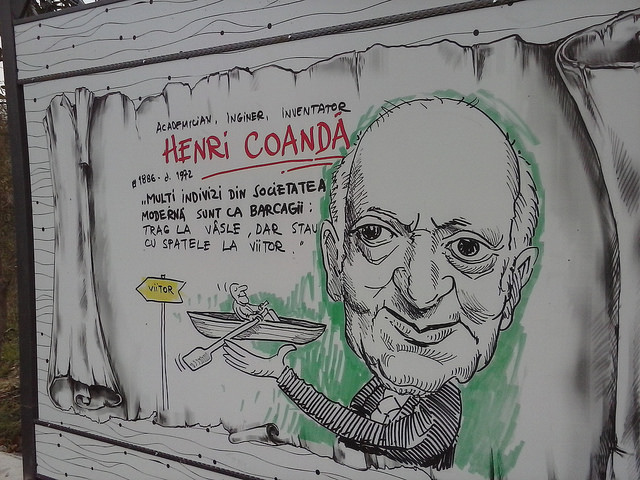 ACADEMICIAN, INGINER, INVENTATOR
HENRI COANDĂ
1886 - d. 1972
„MULTI INDIVIZI DIN SOCIETATEA
MODERNĂ SUNT CA BARCAGII:
TRAG LA VÂSLE, DAR STAU
CU SPATELE LA VIITOR."
VIITOR